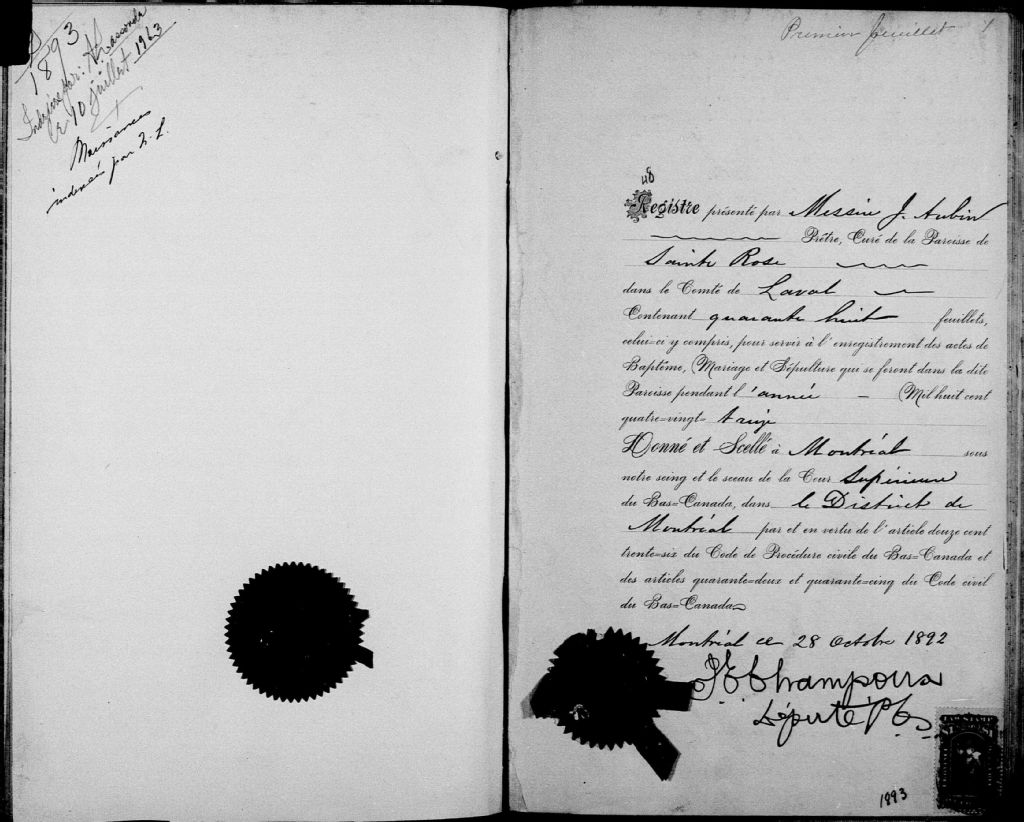 1893
Indexé par: A.
ce 10 juillet 1963
Naissances
indexées par
Premier feuillet 1
48
Registre présenté par Messire J. Aubin
Prêtre, Curé de la Paroisse de
Sainte Rose
dans le Comté de Laval
Contenant quarante huit feuillets,
celui=ci y compris, pour servir à l'enregistrement des actes de
Baptême, Mariage et Sépulture qui se feront dans la dite
Paroisse pendant l'année — Mil huit cent
quatre=vingt= treize
Donné et Scellé à Montréal sous
notre seing et le sceau de la Cour Supérieure
du Bas=Canada, dans le District de
Montréal par et en vertu de l'article douze cent
trente=six du Code de Procédure civile du Bas=Canada et
des articles quarante=deux et quarante=cinq du Code civil
du Bas=Canada
Montréal ce 28 Octobre 1892
Champoux
Député P
1893